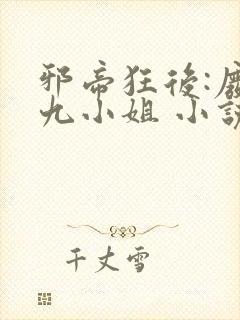 邪帝狂後:
九小姐 小
千丈雪